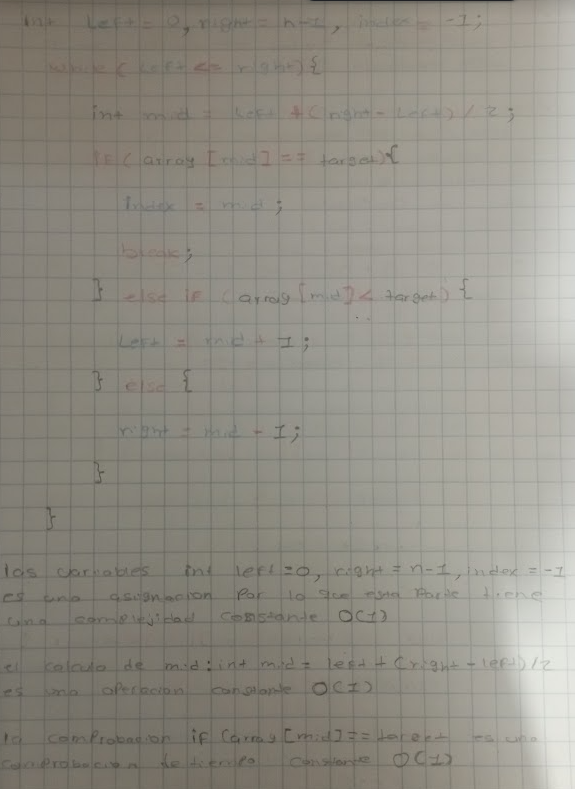 int left = 0, right = n-1, index = -1;
while (left <= right){
int mid = left + (right - left) / 2;
if (array [mid] == target){
index = mid;
break;
} else if (array [mid] < target) {
left = mid + 1;
} else {
right = mid - 1;
}
}
las variables int left = 0, right = n-1, index = -1
es una asignacion por lo que esta parte tiene
una complejidad constante O(1)
el calculo de mid: int mid = left + (right - left) / 2
es una operacion constante O(1)
la comprobacion if (array [mid] == target es una
comprobacion de tiempo constante O(1)